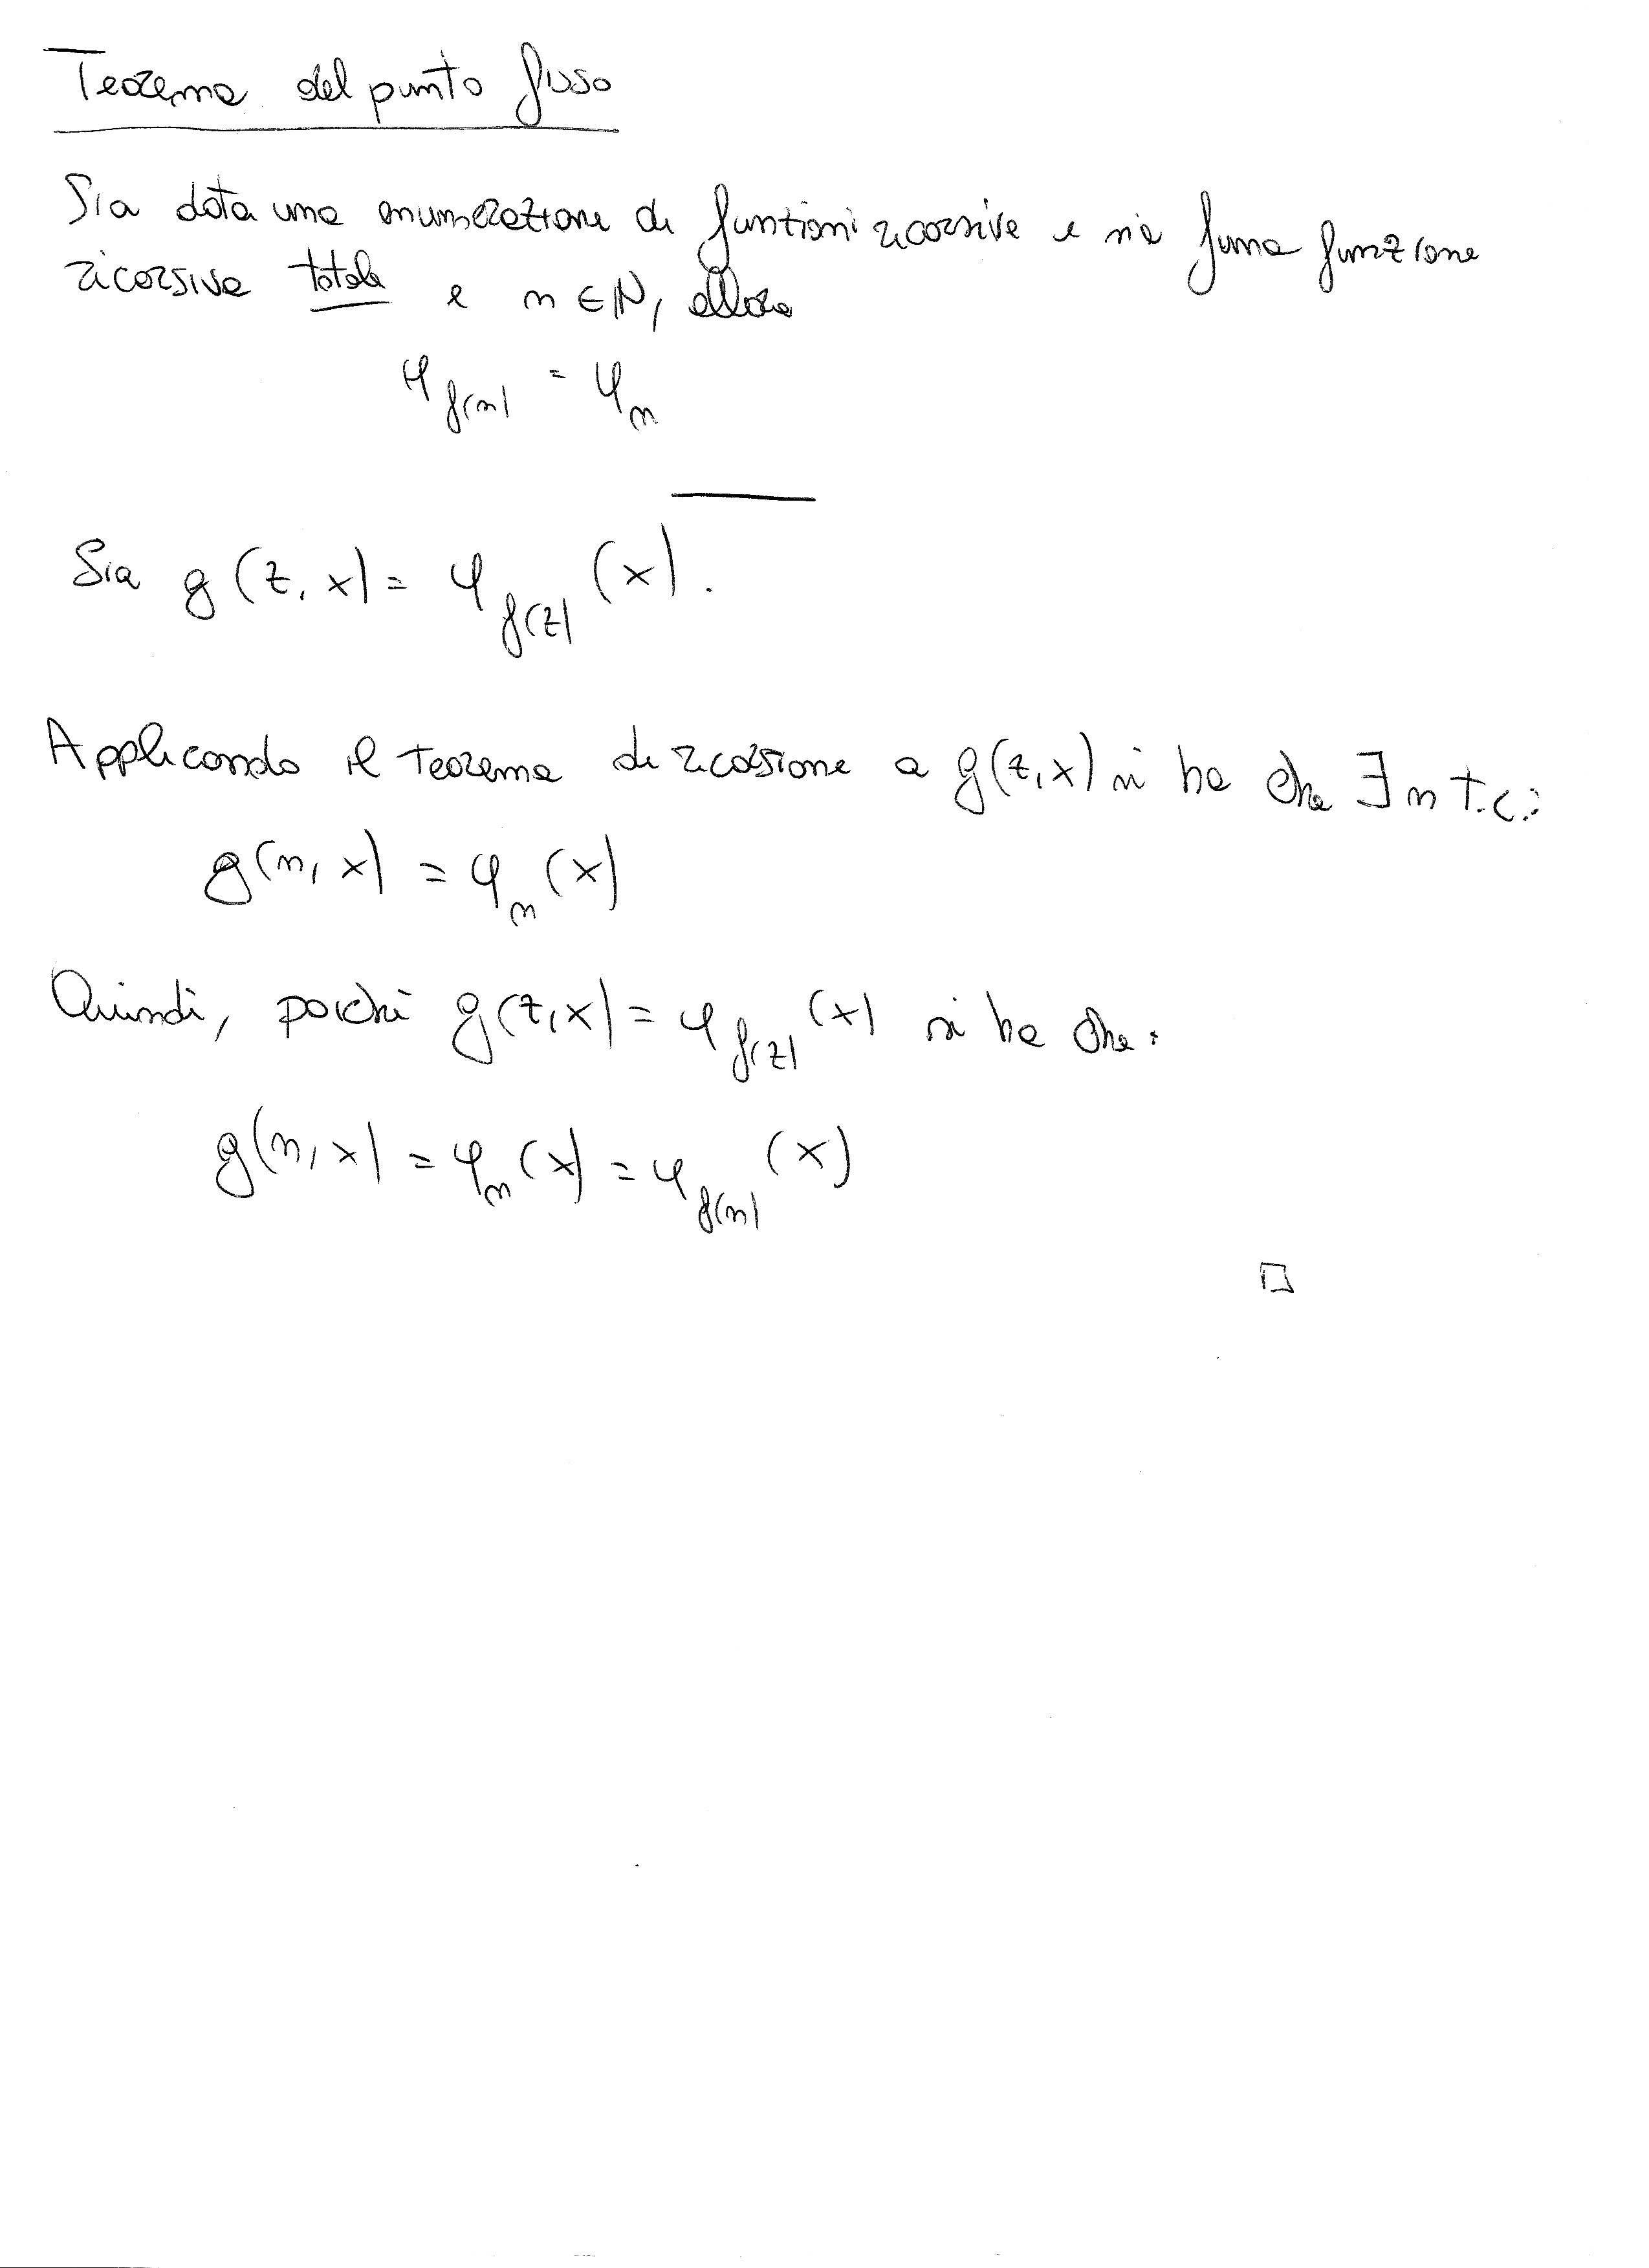 Teorema del punto fisso
Sia data una enumerazione di funzioni ricorsive e sia f una funzione
ricorsiva totale e n ∈ ℕ, allora
φ_f(n) = φ_n
Sia g(z, x) = φ_f(z) (x).
Applicando il teorema di ricorsione a g(z, x) si ha che ∃ n t.c.:
g(n, x) = φ_n (x)
Quindi, poiché g(z, x) = φ_f(z) (x) si ha che:
g(n, x) = φ_n (x) = φ_f(n) (x)
□